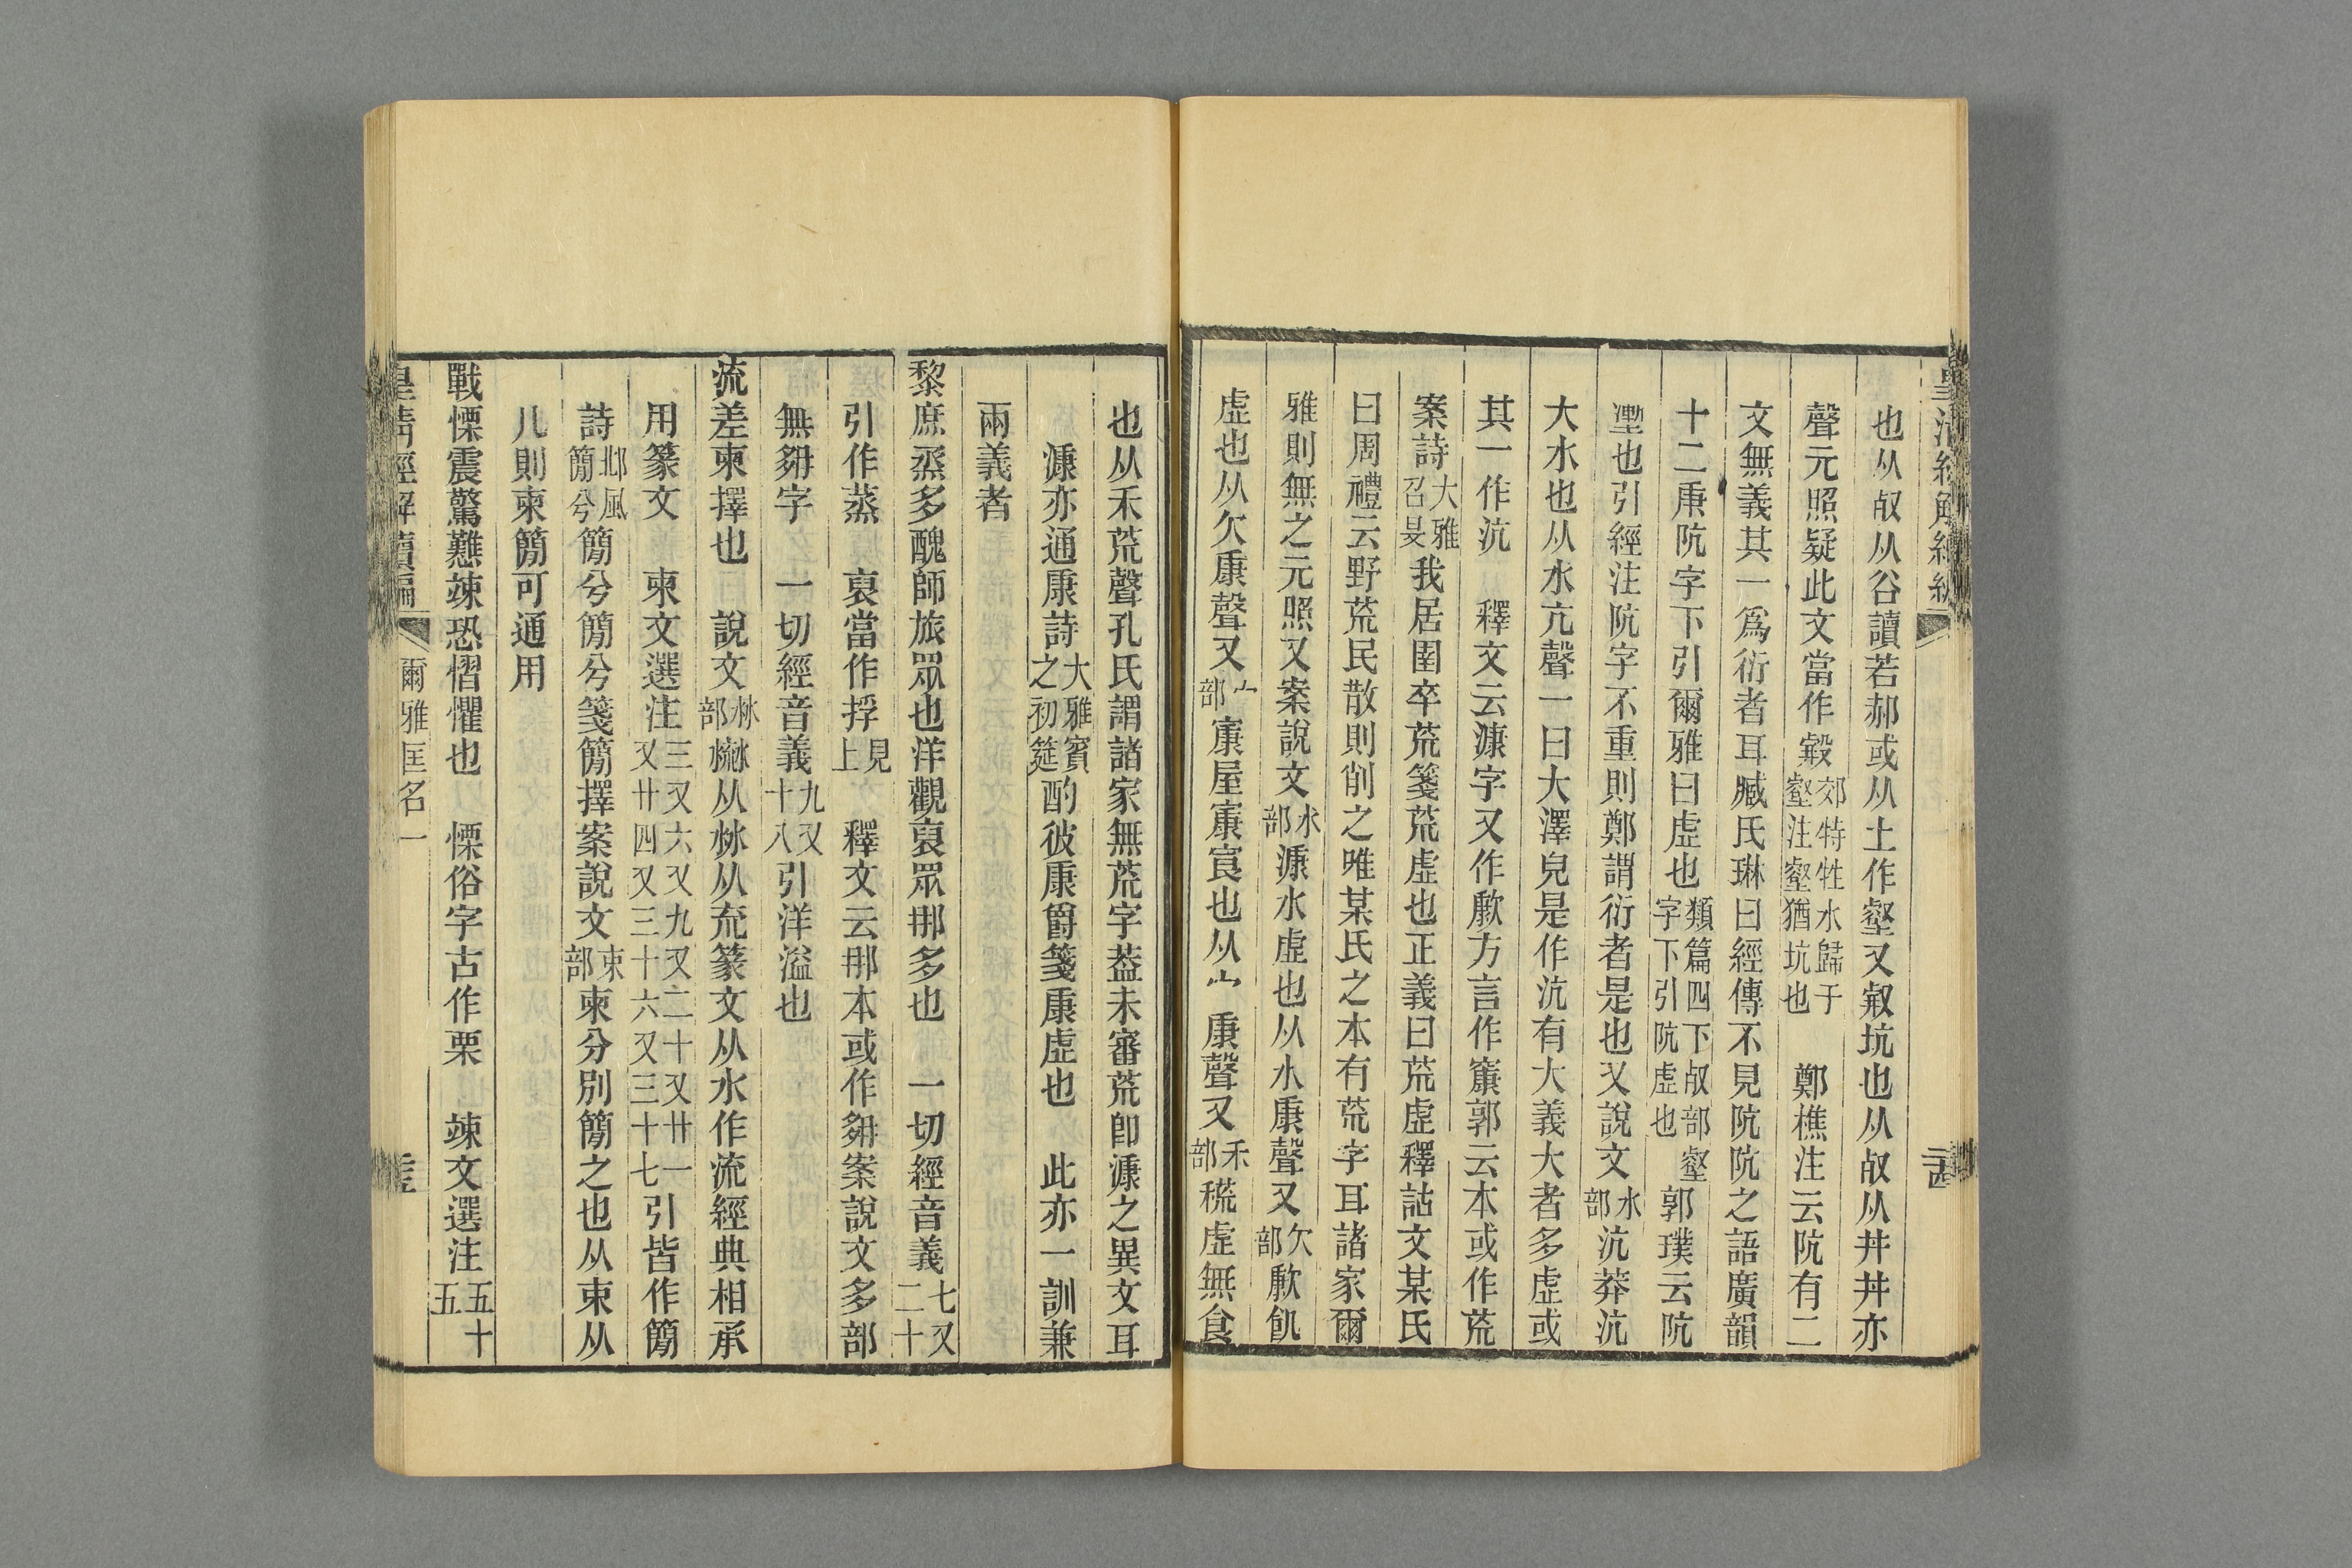 也从𣦼从谷讀若郝或从土作壑又㕡坑也从𣦼从井井亦
聲元照疑此文當作㕡郊特牲水歸于壑注壑猶坑也　鄭樵注云阬有二
文無義其一爲衍者耳臧氏琳曰經傳不見阬阬之語廣韻
十二庚阬字下引爾雅曰虛也類篇四下𣦼部壑字下引阬虛也郭璞云阬
壍也引經注阬字不重則鄭謂衍者是也又說文水部沆莽沆
大水也从水亢聲一曰大澤皃是作沆有大義大者多虛或
其一作沆　釋文云漮字又作歉方言作𥨍郭云本或作荒
案詩大雅召旻我居圉卒荒箋荒虛也正義曰荒虛釋詁文某氏
曰周禮云野荒民散則削之唯某氏之本有荒字耳諸家爾
雅則無之元照又案說文水部漮水虛也从水康聲又欠部歉飢
虛也从欠康聲又宀部㝩屋㝩㝗也从宀康聲又禾部𥞹虛無食
也从禾荒聲孔氏謂諸家無荒字葢未審荒卽漮之異文耳
漮亦通康詩大雅賓之初筵酌彼康爵箋康虛也　此亦一訓兼
兩義者
黎庶烝多醜師旅眾也洋觀裒眾那多也　一切經音義七又二十又
引作蒸　裒當作捊見上　釋文云那本或作㚌案說文多部
無㚌字　一切經音義九又十八又引洋溢也
流差柬擇也　說文沝部㵉从沝从㐬篆文从水作流經典相承
用篆文　柬文選注三又六又九又二十又廿一又廿四又三十六又三十七引皆作簡
詩邶風簡兮簡兮簡兮箋簡擇案說文束部柬分別簡之也从束从
八則柬簡可通用
戰慄震驚戁竦恐慴懼也　慄俗字古作栗　竦文選注五十五
爾雅匡名一